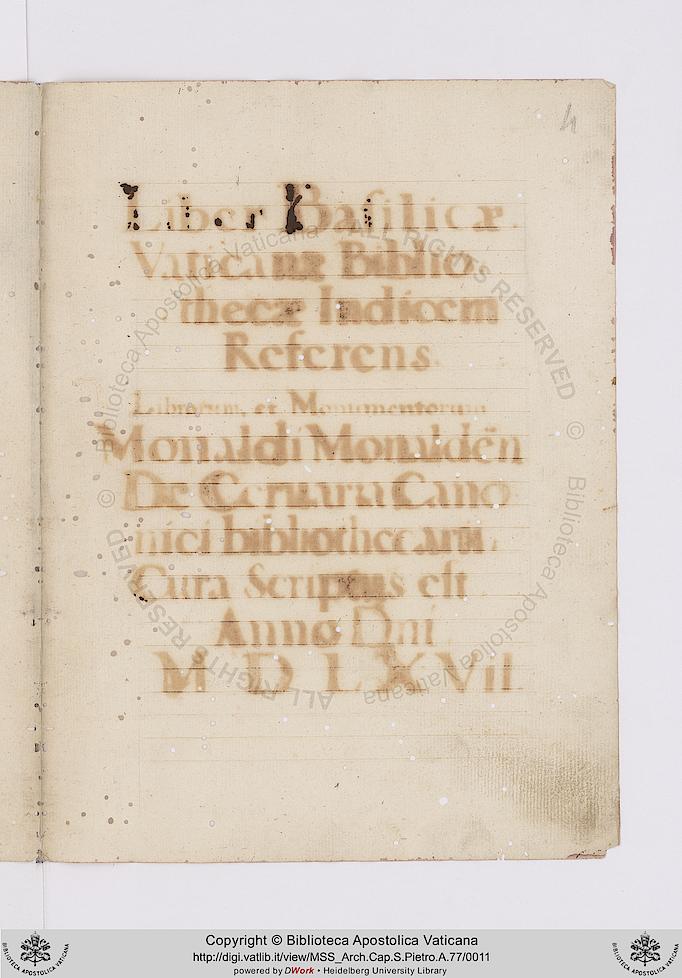 4
Liber Basilicæ
Vaticanæ Biblio
thecæ Indicem
Referens.
Librorum, et Monumentorum
Monaldi Monaldēn
De Ceruara Cano
nici bibliothecarii
Cura Scriptus est
Anno Dni
M D L X Vii
© Biblioteca Apostolica Vaticana ALL RIGHTS RESERVED
© Biblioteca Apostolica Vaticana ALL RIGHTS RESERVED
Copyright © Biblioteca Apostolica Vaticana
http://digi.vatlib.it/view/MSS_Arch.Cap.S.Pietro.A.77/0011
powered by DWork • Heidelberg University Library
BIBLIOTECA APOSTOLICA VATICANA
BIBLIOTECA APOSTOLICA VATICANA